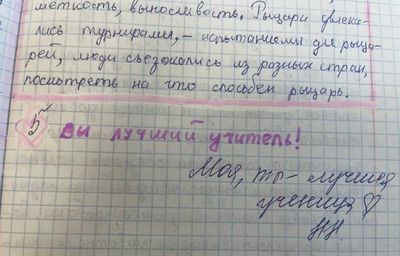 меткость, выносливость. Рыцари увлека-
лись турнирами, – испытаниями для рыца-
рей, люди съезжались из разных стран,
посмотреть на что способен рыцарь.
5
Вы лучший учитель!
Моя, ты – лучшая
ученица ♡
НН.